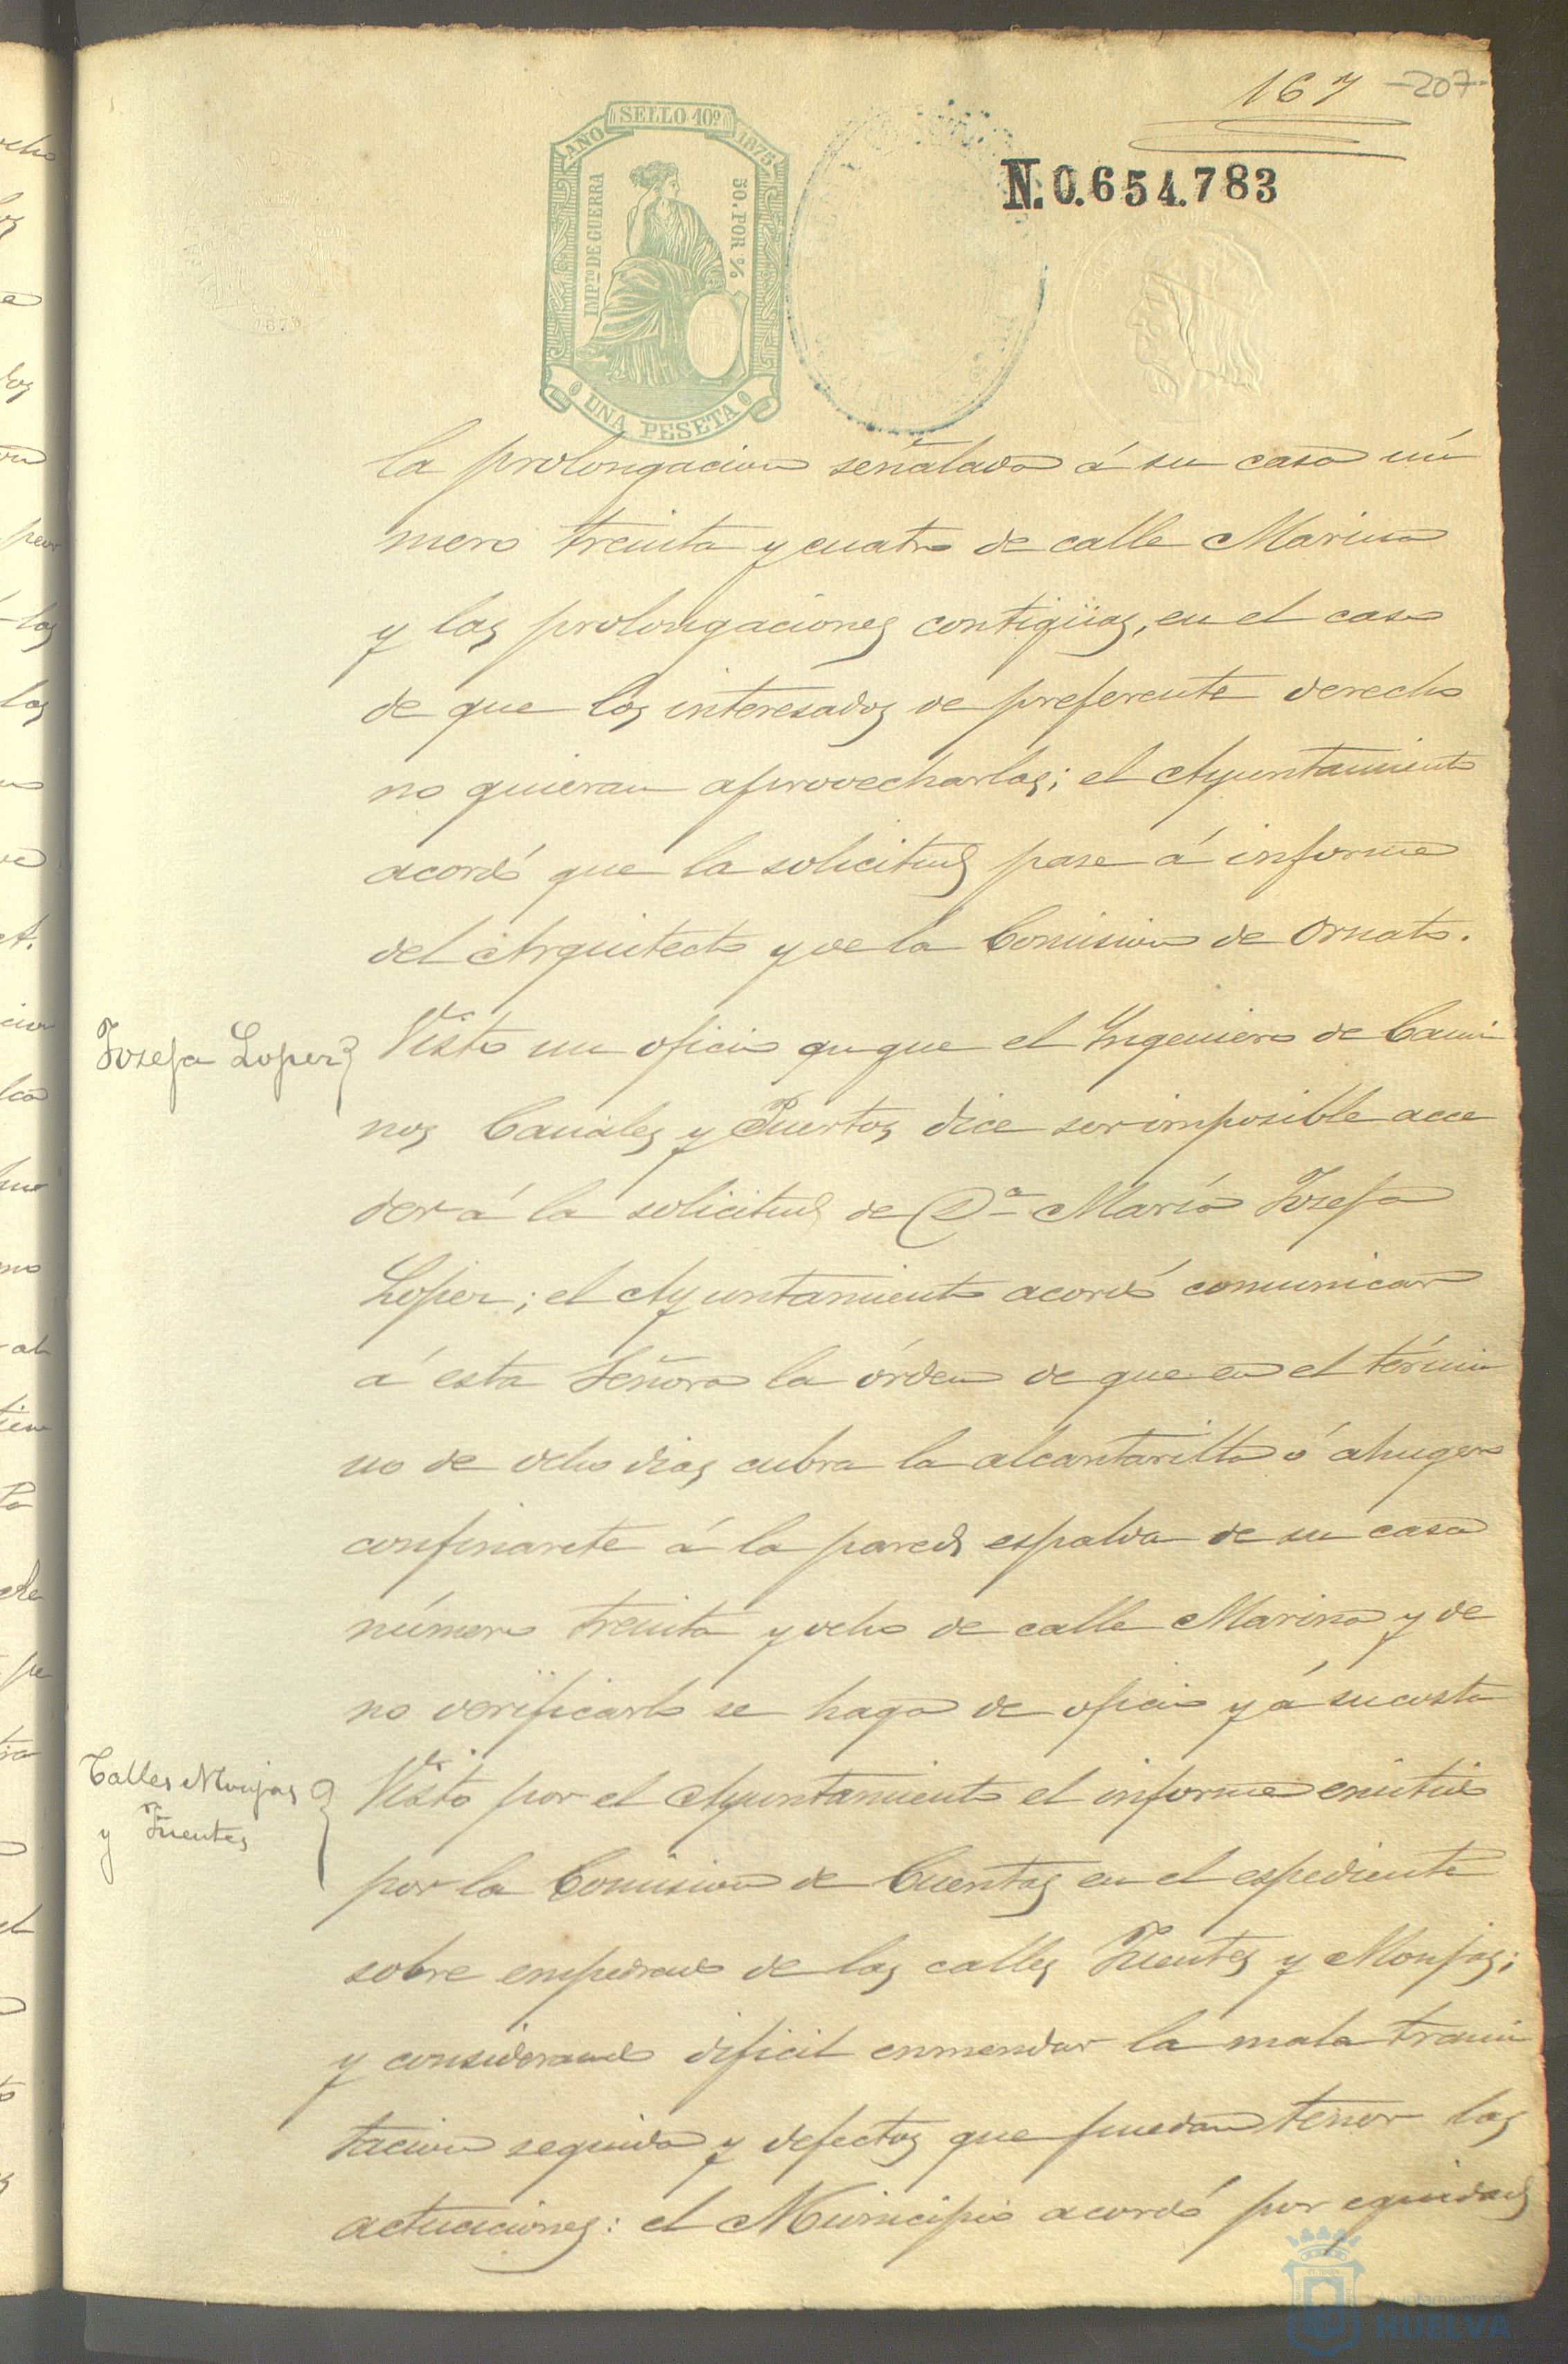 167 -207-
AÑO SELLO 10º 1875
IMPTO DE GUERRA
50. POR %
UNA PESETA
N. 0.654.783
la prolongacion señalada á su casa nú
mero treinta y cuatro de calle Marina
y las prolongaciones contigüas, en el caso
de que los interesados de preferente derecho
no quieran aprovecharlas; el Ayuntamiento
acordó que la solicitud pase á informe
del Arquitecto y de la Comision de Ornato.
Josefa Lopez
Visto un oficio que el Ingeniero de Cami
nos Canales y Puertos dice ser imposible acce
der á la solicitud de Dª María Josefa
Lopez; el Ayuntamiento acordó comunicar
á esta Señora la órden de que en el térmi
no de ocho dias cubra la alcantarilla ó ahugero
confinante á la pared espalda de su casa
número treinta y ocho de calle Marina y de
no verificarlo se haga de oficio y á su costa
Calles Monjas
y Fuentes
Visto por el Ayuntamiento el informe emitido
por la Comision de Cuentas en el espediente
sobre empedrado de las calles Fuentes y Monjas;
y considerando dificil enmendar la mala trami
tacion seguida y defectos que puedan tener las
actuaciones: el Municipio acordó por equidad
Ayuntamiento de
HUELVA